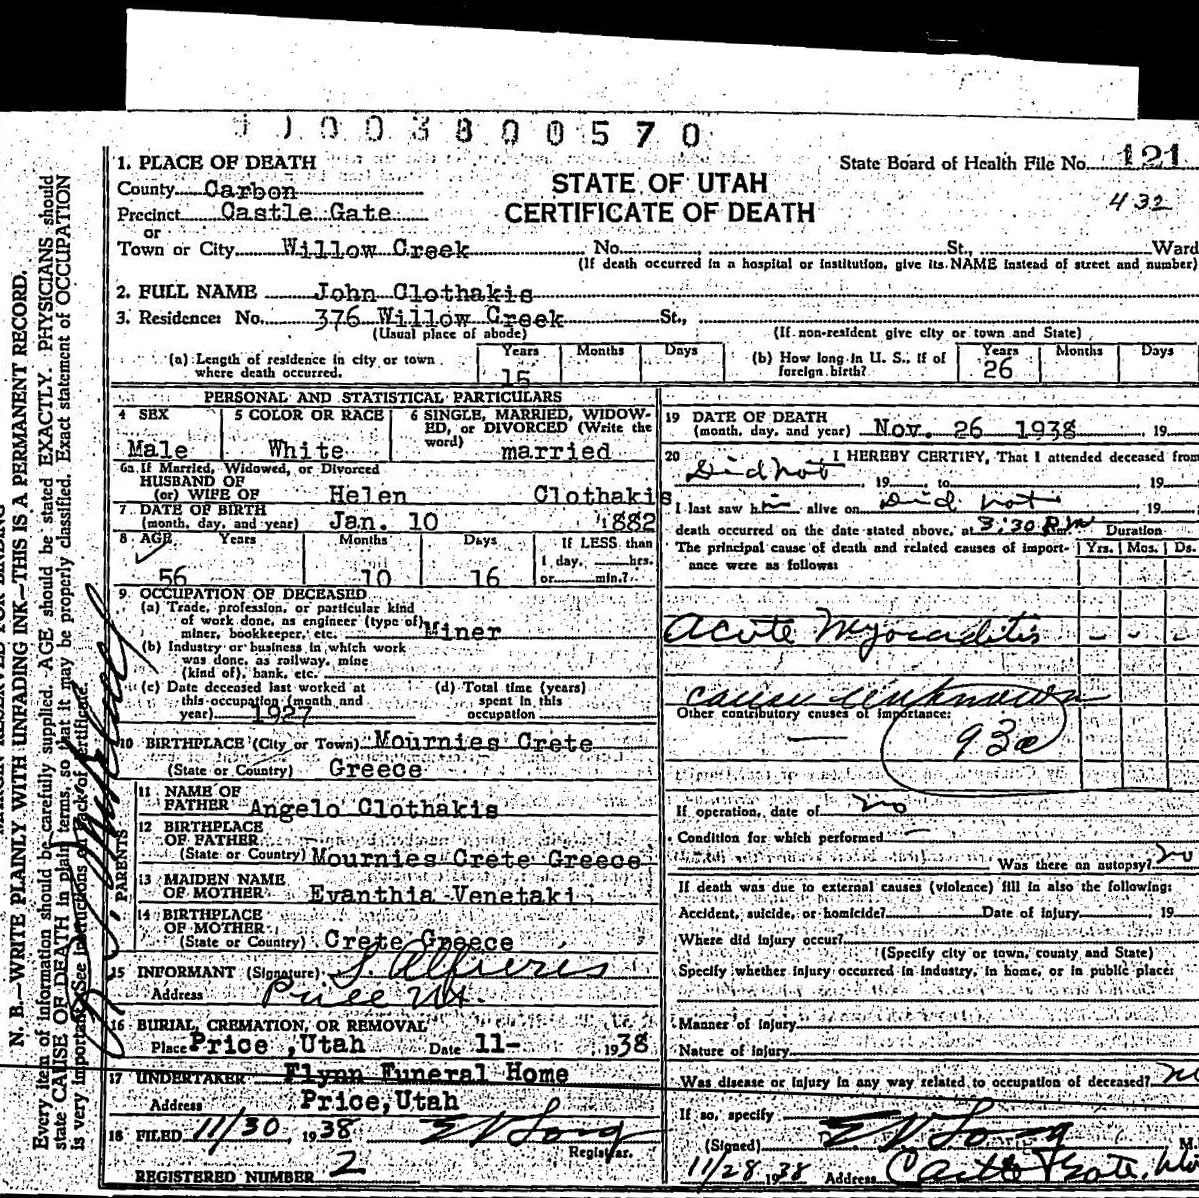 0 0 3 8 0 0 5 7 0
1. PLACE OF DEATH
County Carbon
Precinct Castle Gate
or
Town or City Willow Creek No. St., Ward
(If death occurred in a hospital or institution, give its NAME instead of street and number)
STATE OF UTAH
CERTIFICATE OF DEATH
State Board of Health File No. 121
432
2. FULL NAME John Clothakis
3. Residence: No. 376 Willow Creek St.,
(Usual place of abode) (If non-resident give city or town and State)
(a) Length of residence in city or town where death occurred. Years 15 Months Days
(b) How long in U. S., if of foreign birth? Years 26 Months Days
PERSONAL AND STATISTICAL PARTICULARS
4 SEX Male
5 COLOR OR RACE White
6 SINGLE, MARRIED, WIDOWED, or DIVORCED (Write the word) married
6a If Married, Widowed, or Divorced
HUSBAND OF
(or) WIFE OF Helen Clothakis
7 DATE OF BIRTH
(month, day, and year) Jan. 10 1882
8 AGE Years Months Days If LESS than
1 day, hrs.
56 10 16 or min.?
9. OCCUPATION OF DECEASED
(a) Trade, profession, or particular kind
of work done, as engineer (type of)
miner, bookkeeper, etc. Miner
(b) Industry or business in which work
was done, as railway, mine
(kind of), bank, etc.
(c) Date deceased last worked at
this occupation (month and
year) 1927
(d) Total time (years)
spent in this
occupation
10 BIRTHPLACE (City or Town) Mournies Crete
(State or Country) Greece
PARENTS
11 NAME OF
FATHER Angelo Clothakis
12 BIRTHPLACE
OF FATHER
(State or Country) Mournies Crete Greece
13 MAIDEN NAME
OF MOTHER Evanthia Venetaki
14 BIRTHPLACE
OF MOTHER
(State or Country) Crete Greece
15 INFORMANT (Signature) S. Alfieris
Address Price Ut.
16 BURIAL, CREMATION, OR REMOVAL
Place Price ,Utah Date 11- 1938
17 UNDERTAKER Flynn Funeral Home
Address Price,Utah
18 FILED 11/30, 1938 E V Long
Registrar.
REGISTERED NUMBER 2
19 DATE OF DEATH
(month, day, and year) Nov. 26 1938 , 19
20 I HEREBY CERTIFY, That I attended deceased from
Did not 19 to 19
I last saw him alive on did not 19
death occurred on the date stated above, at 3:30 P.m. Duration
The principal cause of death and related causes of importance were as follows: Yrs. Mos. Ds.
Acute Myocarditis - - -
cause unknown
Other contributory causes of importance:
93a
If operation, date of no
Condition for which performed
Was there an autopsy? no
If death was due to external causes (violence) fill in also the following:
Accident, suicide, or homicide? Date of injury 19
Where did injury occur?
(Specify city or town, county and State)
Specify whether injury occurred in industry, in home, or in public place:
Manner of injury
Nature of injury
Was disease or injury in any way related to occupation of deceased? no
If so, specify
(Signed) E V Long M
11/28 1938 Address Castle Gate,
N. B.—WRITE PLAINLY WITH UNFADING INK—THIS IS A PERMANENT RECORD.
Every item of information should be carefully supplied. AGE should be stated EXACTLY. PHYSICIANS should
state CAUSE OF DEATH in plain terms, so that it may be properly classified. Exact statement of OCCUPATION
is very important. See instructions on back of certificate.